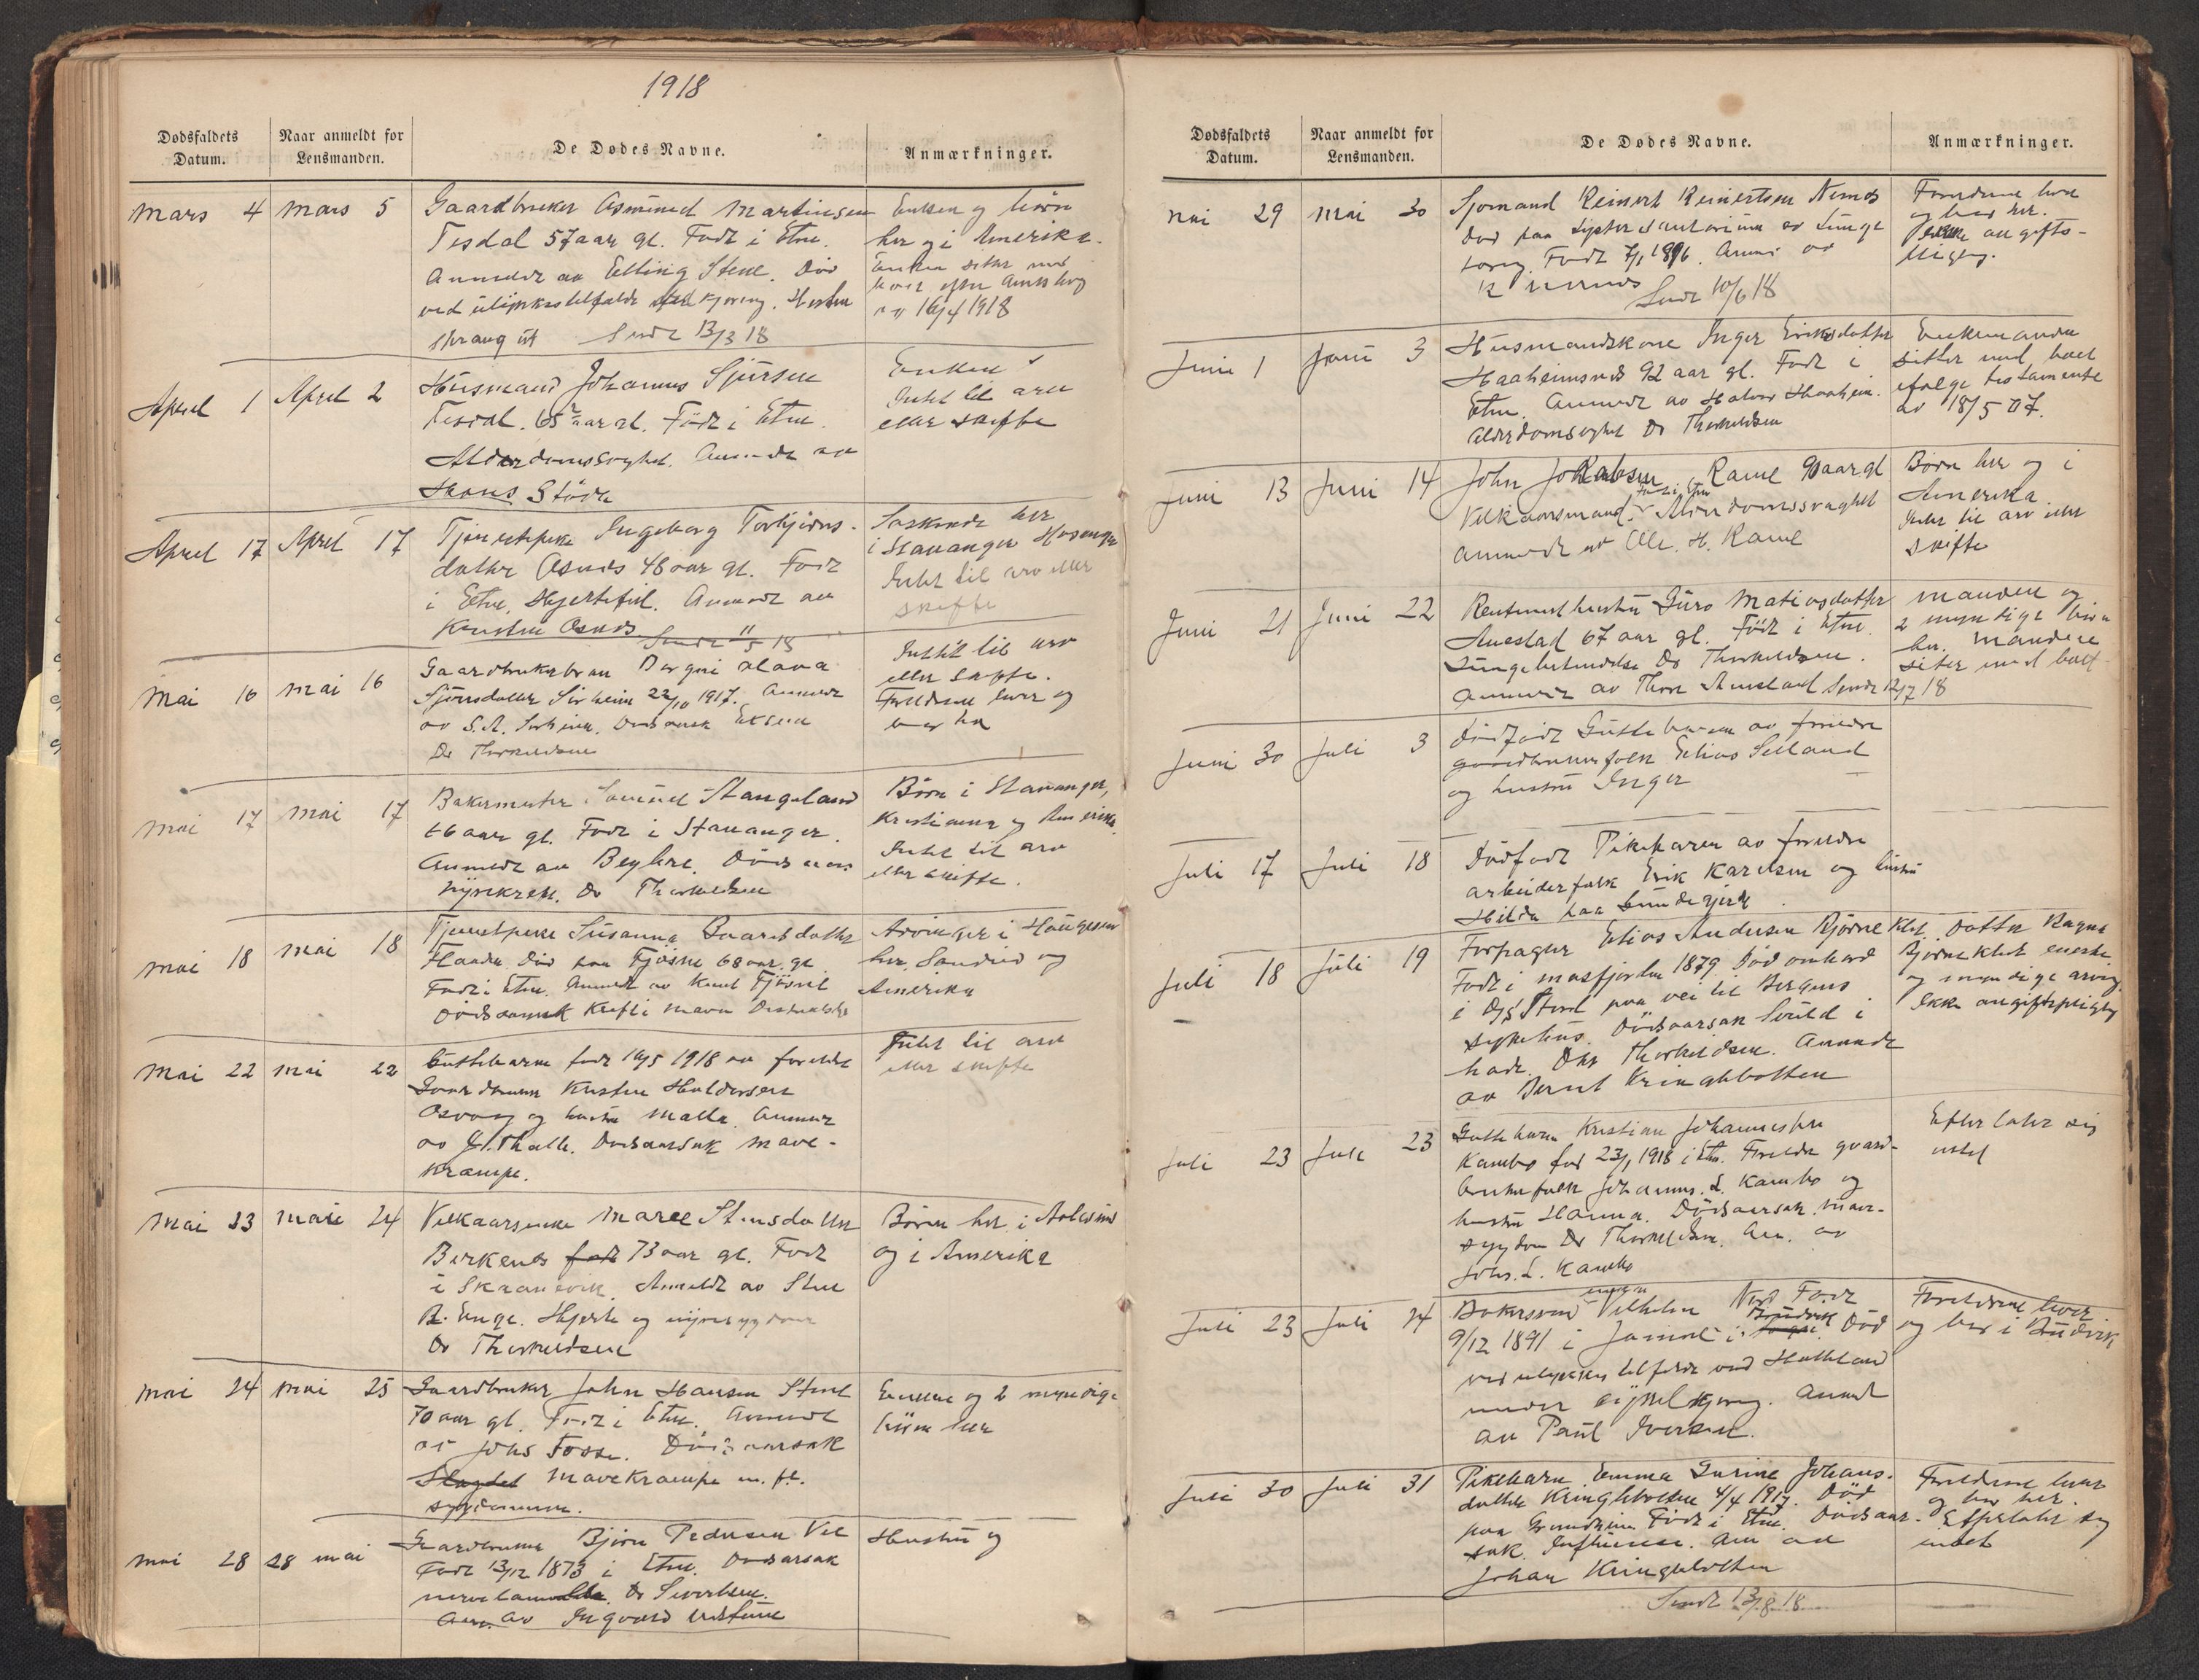 1918
Dødsfaldets Datum.
Naar anmeldt for Lensmanden.
De Dødes Navne.
Anmærkninger.
Mars 4 Mars 5
Gaardbruker Asmund Martinsen
Tesdal 57 aar gl. Født i Etne.
Anmeldt av Elling Stene. Død
ved ulykkestilfælde ved kjøring. Hesten
sprang ut Sendt 13/3 18
Enken og børn
her og i Amerika.
Enken sitter med
av 16/4 1918
April 1 April 2
Husmand Johannes Sjursen
Tesdal. 65 aar gl. Født i Etne.
Alderdomssvaghet. Anmeldt av
Hans Støde
Enken
Intet til arv
eller skifte
April 17 April 17
Tjenestepike Ingeborg Torbjørns-
datter Osnes 48 aar gl. Født
i Etne. Hjertefeil. Anmeldt av
Kristen Osnes Sendt 11/5 18
Søskende her
i Stavanger
Intet til arv eller
skifte
Mai 16 Mai 16
Gaardbrukerbarn
Sjursdatter 22/10 1917. Anmeldt
av S. A. Dødsaarsak
Dr Thorkeldsen
Intet til arv
eller skifte.
Forældrene lever og
bor her
Mai 17 Mai 17
Bakermester Samuel Stangeland
66 aar gl. Født i Stavanger.
Anmeldt av Dødsaars.
nyrekreft. Dr Thorkeldsen
Børn i Stavanger,
Kristiania og Amerika.
Intet til arv
eller skifte.
Mai 18 Mai 18
Tjenestepike Susanna Baardsdatter
Flaade. Død paa Fjøsne 68 aar gl.
Født i Etne. Anmeldt av Knut Fjøsne
Dødsaarsak Kreft i maven
Arvinger i Haugesund
her, Sandeid og
Amerika
Mai 22 Mai 22
Guttebarn født 16/5 1918 av forældre
Gaardbruker Kristen Haldorsen
Osvaag og hustru Malla. Anmeldt
av Dødsaarsak mave-
krampe.
Intet til arv
eller skifte
Mai 23 Mai 24
Vilkaarsenke Maree Stensdatter
Birkenes født 73 aar gl. Født
i Skaanevik. Anmeldt av Sten
B. Enge. Hjerte og nyresygdom
Dr Thorkeldsen
Børn her, i Aalesund
og i Amerika
Mai 24 Mai 25
Gaardbruker John Hansen Stene
70 aar gl. Født i Etne. Anmeldt
av Johs Fosse. Dødsaarsak
Slagdet mavekrampe m. fl.
sygdommer.
Enken og 2 myndige
børn her
Mai 28 28 Mai
Gaardbruker Bjørn Pedersen Vik
Født 13/12 1873 i Etne. Dødsarsak
Dr Sivertsen.
Anm. av Ingvard
Hustru og
Dødsfaldets Datum.
Naar anmeldt for Lensmanden.
De Dødes Navne.
Anmærkninger.
Mai 29 Mai 30
Sjømand Reinert Reinertsen Nernes
Død paa Lyster sanatorium av lunge
Født 7/1 1896. Anm. av
R Nernes
Sendt 10/6 18
Forældrene lever
og bor her.
Ikke avgifts-
pligtig.
Juni 1 Juni 3
Husmandskone Inger Eriksdatter
Haaheimsnes 92 aar gl. Født i
Etne. Anmeldt av Halvor Haaheim.
Alderdomssvaghet Dr Thorkeldsen
Enkemanden
sitter med boet
ifølge testamente
av 18/5 07.
Juni 13 Juni 14
John Jokabsen Rame 90 aar gl
Født i Etne
Vilkaarsmand. Alderdomssvaghet
Anmeldt av Ole H. Rame
Børn her og i
Amerika.
Intet til arv eller
skifte
Juni 21 Juni 22
Rentenisthustru Guro Matiasdatter
Anestad 67 aar gl. Født i Etne.
Lungebetendelse Dr Thorkeldsen.
Anmeldt av Thore Anestad Sendt 12/7 18
Manden og
2 myndige børn
her. Manden
sitter med boet
Juni 30 Juli 3
Dødfødt Guttebarn av foreldre
gaardbrukerfolk Elias Silland
og hustru Inger
Juli 17 Juli 18
Dødfødt Pikebarn av foreldre
arbeiderfolk Erik Karlsen og hustru
Hilda paa
Juli 18 Juli 19
Forpagter Elias Andersen Bjørneklet
Født i Masfjorden 1879 Død ombord
i D/S Stord paa vei til Bergens
sykehus. Dødsaarsak
Dr Thorkeldsen. Anmeldt
av Bernt Kringlebotten
Datter Ragna
Bjørneklet eneste
og myndige arving.
Ikke avgiftspligtig
Juli 23 Juli 23
Guttebarn Kristian Johannessen
Kambo fød 23/1 1918 i Etne. Foreldre gaard-
brukerfolk Johannes L. Kambo og
hustru Hanna. Dødsaarsak mave-
sygdom Dr Thorkeldsen. Anm. av
Johs. L. Kambo
Efterlater sig
intet
Juli 23 Juli 24
Bakersvend Vilhelm Født
9/12 1891 i Død
ved ulykkestilfelde ved Hatteland
under sykkelkjøring. Anmeldt
av Paul Iversen.
Foreldrene lever
og bor i
Juli 30 Juli 31
Pikebarn Emma Gurine Johans-
datter Kringlebotten 4/4 1917. Død
paa Grindheim Født i Etne. Dødsaar-
sak. Influense. Anm av
Johan Kringlebotten
Foreldrene lever
og bor her.
Efterlater sig
intet
Sendt 13/8 18